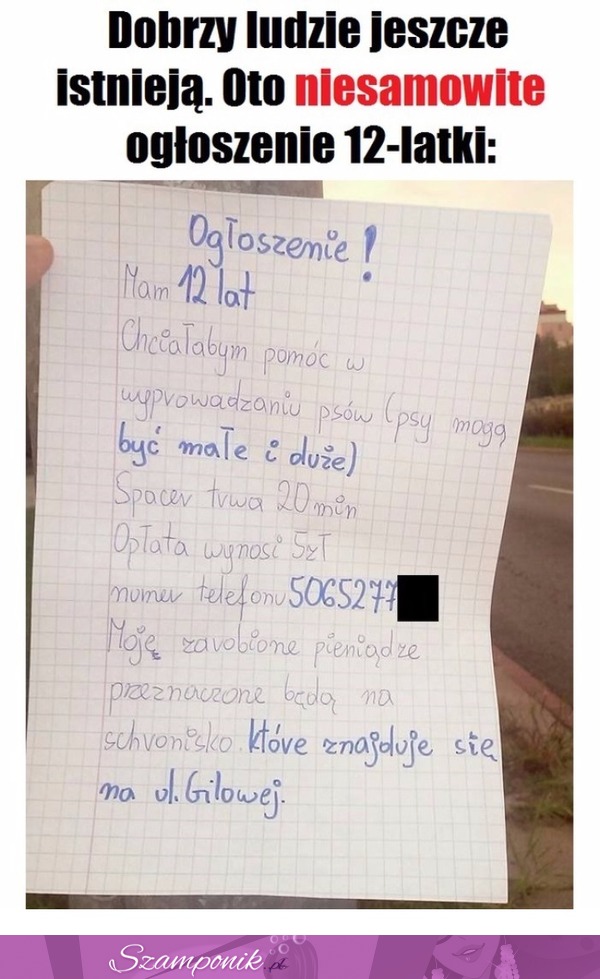 Dobrzy ludzie jeszcze
istnieją. Oto niesamowite
ogłoszenie 12-latki:
Ogłoszenie!
Mam 12 lat
Chciałabym pomóc w
wyprowadzaniu psów (psy mogą
być małe i duże)
Spacer trwa 20 min
Opłata wynosi 5zł
numer telefonu 5065277
Moję zarobione pieniądze
przeznaczone będą na
schronisko które znajduje się
na ul. Gilowej.
Szamponik.pl